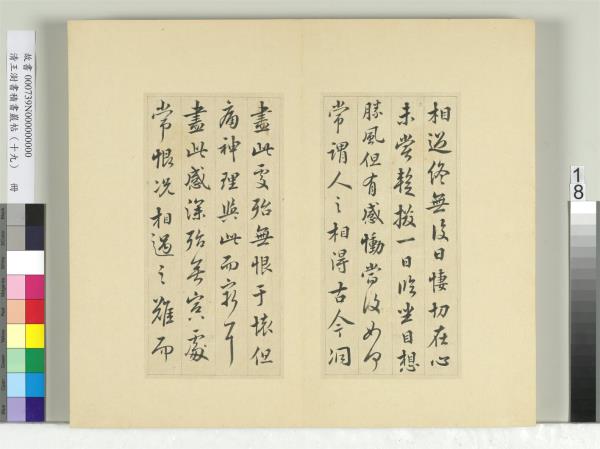 相過終無復日悽切在心
未嘗暫掇一日臨坐目想
勝風但有感慟當復如何
常謂人之相得古今洞
盡此處殆無恨于懷但
痛神理與此而窮耳
盡此感深殆無冥處
常恨況相遇之難而
故書 000739N000000000
清王澍書積書巖帖（十九） 冊
18